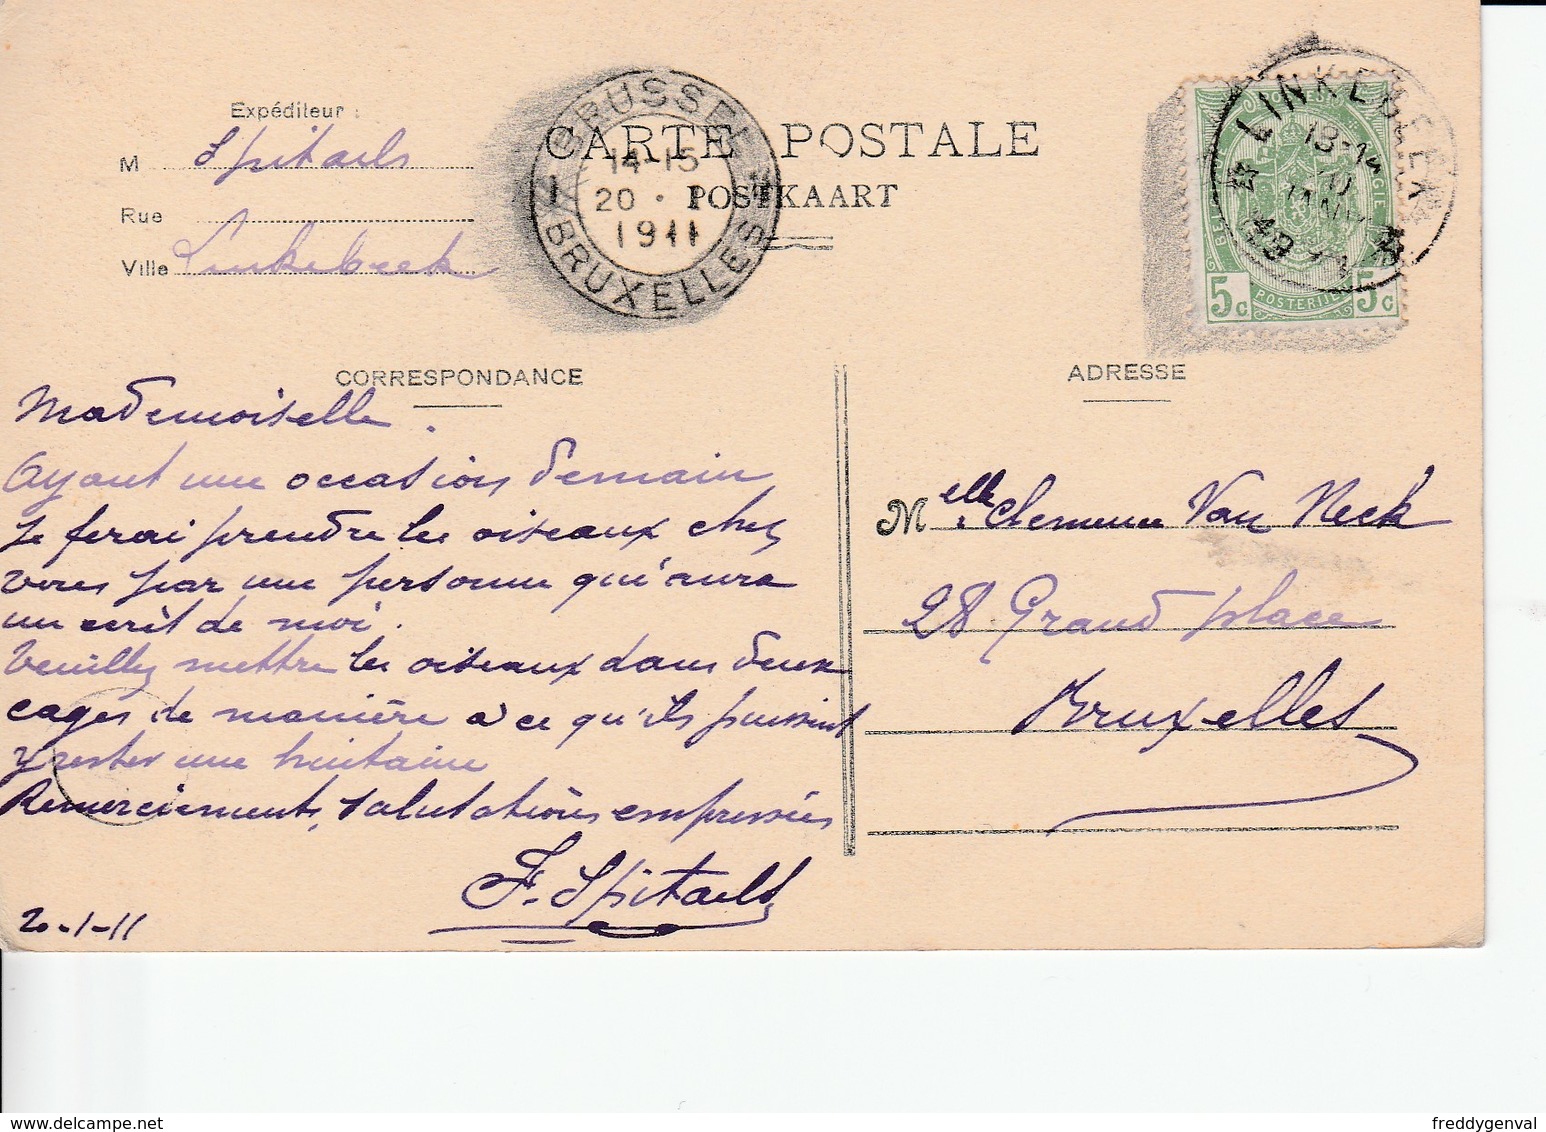 Expéditeur :
M Spitaels
Rue
Ville Linkebeek
BRUSSEL
14-15
20 · I
1911
BRUXELLES
CARTE POSTALE
POSTKAART
LINKEBEEK
13-1
1911
5c POSTERIJEN 5c
CORRESPONDANCE
Mademoiselle.
Ayant une occasion demain
Je ferai prendre les oiseaux chez
vous par une personne qui aura
un ecrit de moi.
Veuillez mettre les oiseaux dans deux
cages de manière à ce qu'ils puissent
y rester une huitaine
Remerciements, salutations empressées
F. Spitaels
20-1-11
ADRESSE
Melle Clemence Van Neck
28 Grand place
Bruxelles
freddygenval